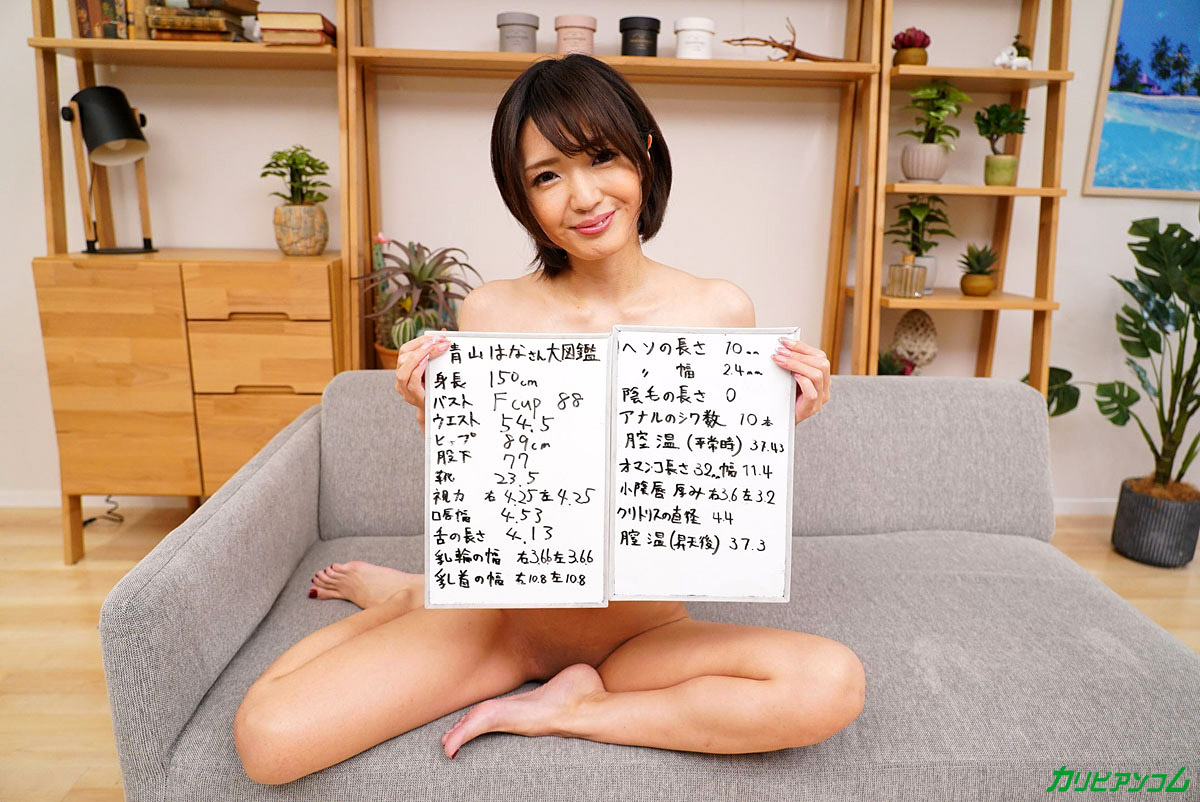 青山はなさん大図鑑
身長 150cm
バスト Fcup 88
ウエスト 54.5
ヒップ 89cm
股下 77
靴 23.5
視力 右4.25左4.25
口唇幅 4.53
舌の長さ 4.13
乳輪の幅 右3.66左3.66
乳首の幅 右10.8左10.8
ヘソの長さ 10mm
〃 幅 2.4mm
陰毛の長さ 0
アナルのシワ数 10本
膣温(平常時)37.43
オマンコ長さ32mm幅11.4
小陰唇 厚み右3.6左3.2
クリトリスの直径 4.4
膣温(昇天後) 37.3
カリビアンコム